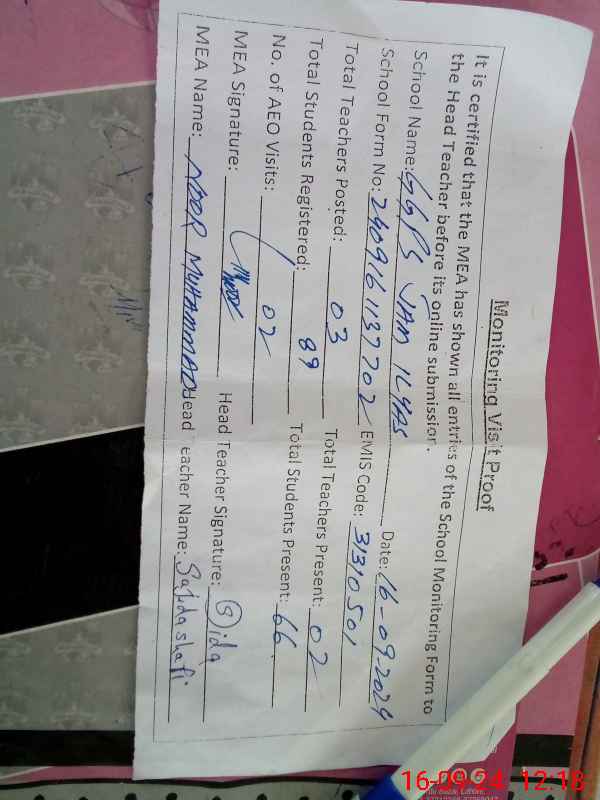 Monitoring Visit Proof
It is certified that the MEA has shown all entries of the School Monitoring Form to
the Head Teacher before its online submission.
School Name: GGPS JAM ILYAS Date: 16-09-2024
School Form No: 2409161137702 EMIS Code: 31310501
Total Teachers Posted: 03 Total Teachers Present: 02
Total Students Registered: 89 Total Students Present: 66
No. of AEO Visits: 02
MEA Signature: Head Teacher Signature: Sida
MEA Name: NOOR MUHAMMAD Head eacher Name: Sajida shafi
16-09-24 12:18